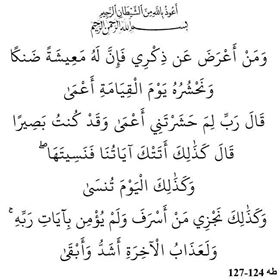 أعوذ بالله من الشيطان الرجيم
بسم الله الرحمن الرحيم
وَمَنْ أَعْرَضَ عَن ذِكْرِي فَإِنَّ لَهُ مَعِيشَةً ضَنكًا
وَنَحْشُرُهُ يَوْمَ الْقِيَامَةِ أَعْمَىٰ
قَالَ رَبِّ لِمَ حَشَرْتَنِي أَعْمَىٰ وَقَدْ كُنتُ بَصِيرًا
قَالَ كَذَٰلِكَ أَتَتْكَ آيَاتُنَا فَنَسِيتَهَا ۖ
وَكَذَٰلِكَ الْيَوْمَ تُنسَىٰ
وَكَذَٰلِكَ نَجْزِي مَنْ أَسْرَفَ وَلَمْ يُؤْمِن بِآيَاتِ رَبِّهِ ۚ
وَلَعَذَابُ الْآخِرَةِ أَشَدُّ وَأَبْقَىٰ
طه 124-127